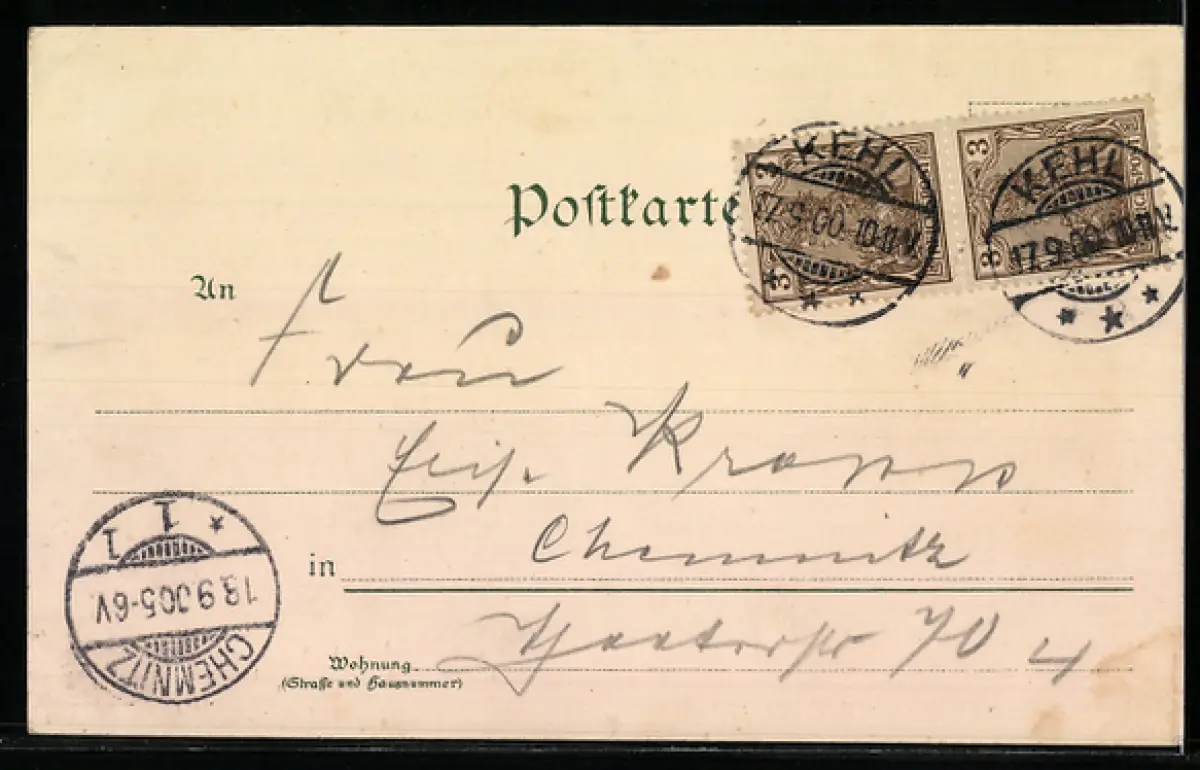 Postkarte
3 3
KEHL
17.9.00. 10-11 V.
3
3 3
KEHL
17.9.00. 10-11 V.
An
Frau
Kropp
in Chemnitz
70 4
Wohnung
(Straße und Hausnummer)
CHEMNITZ
18.9.00.5-6V.
1 1